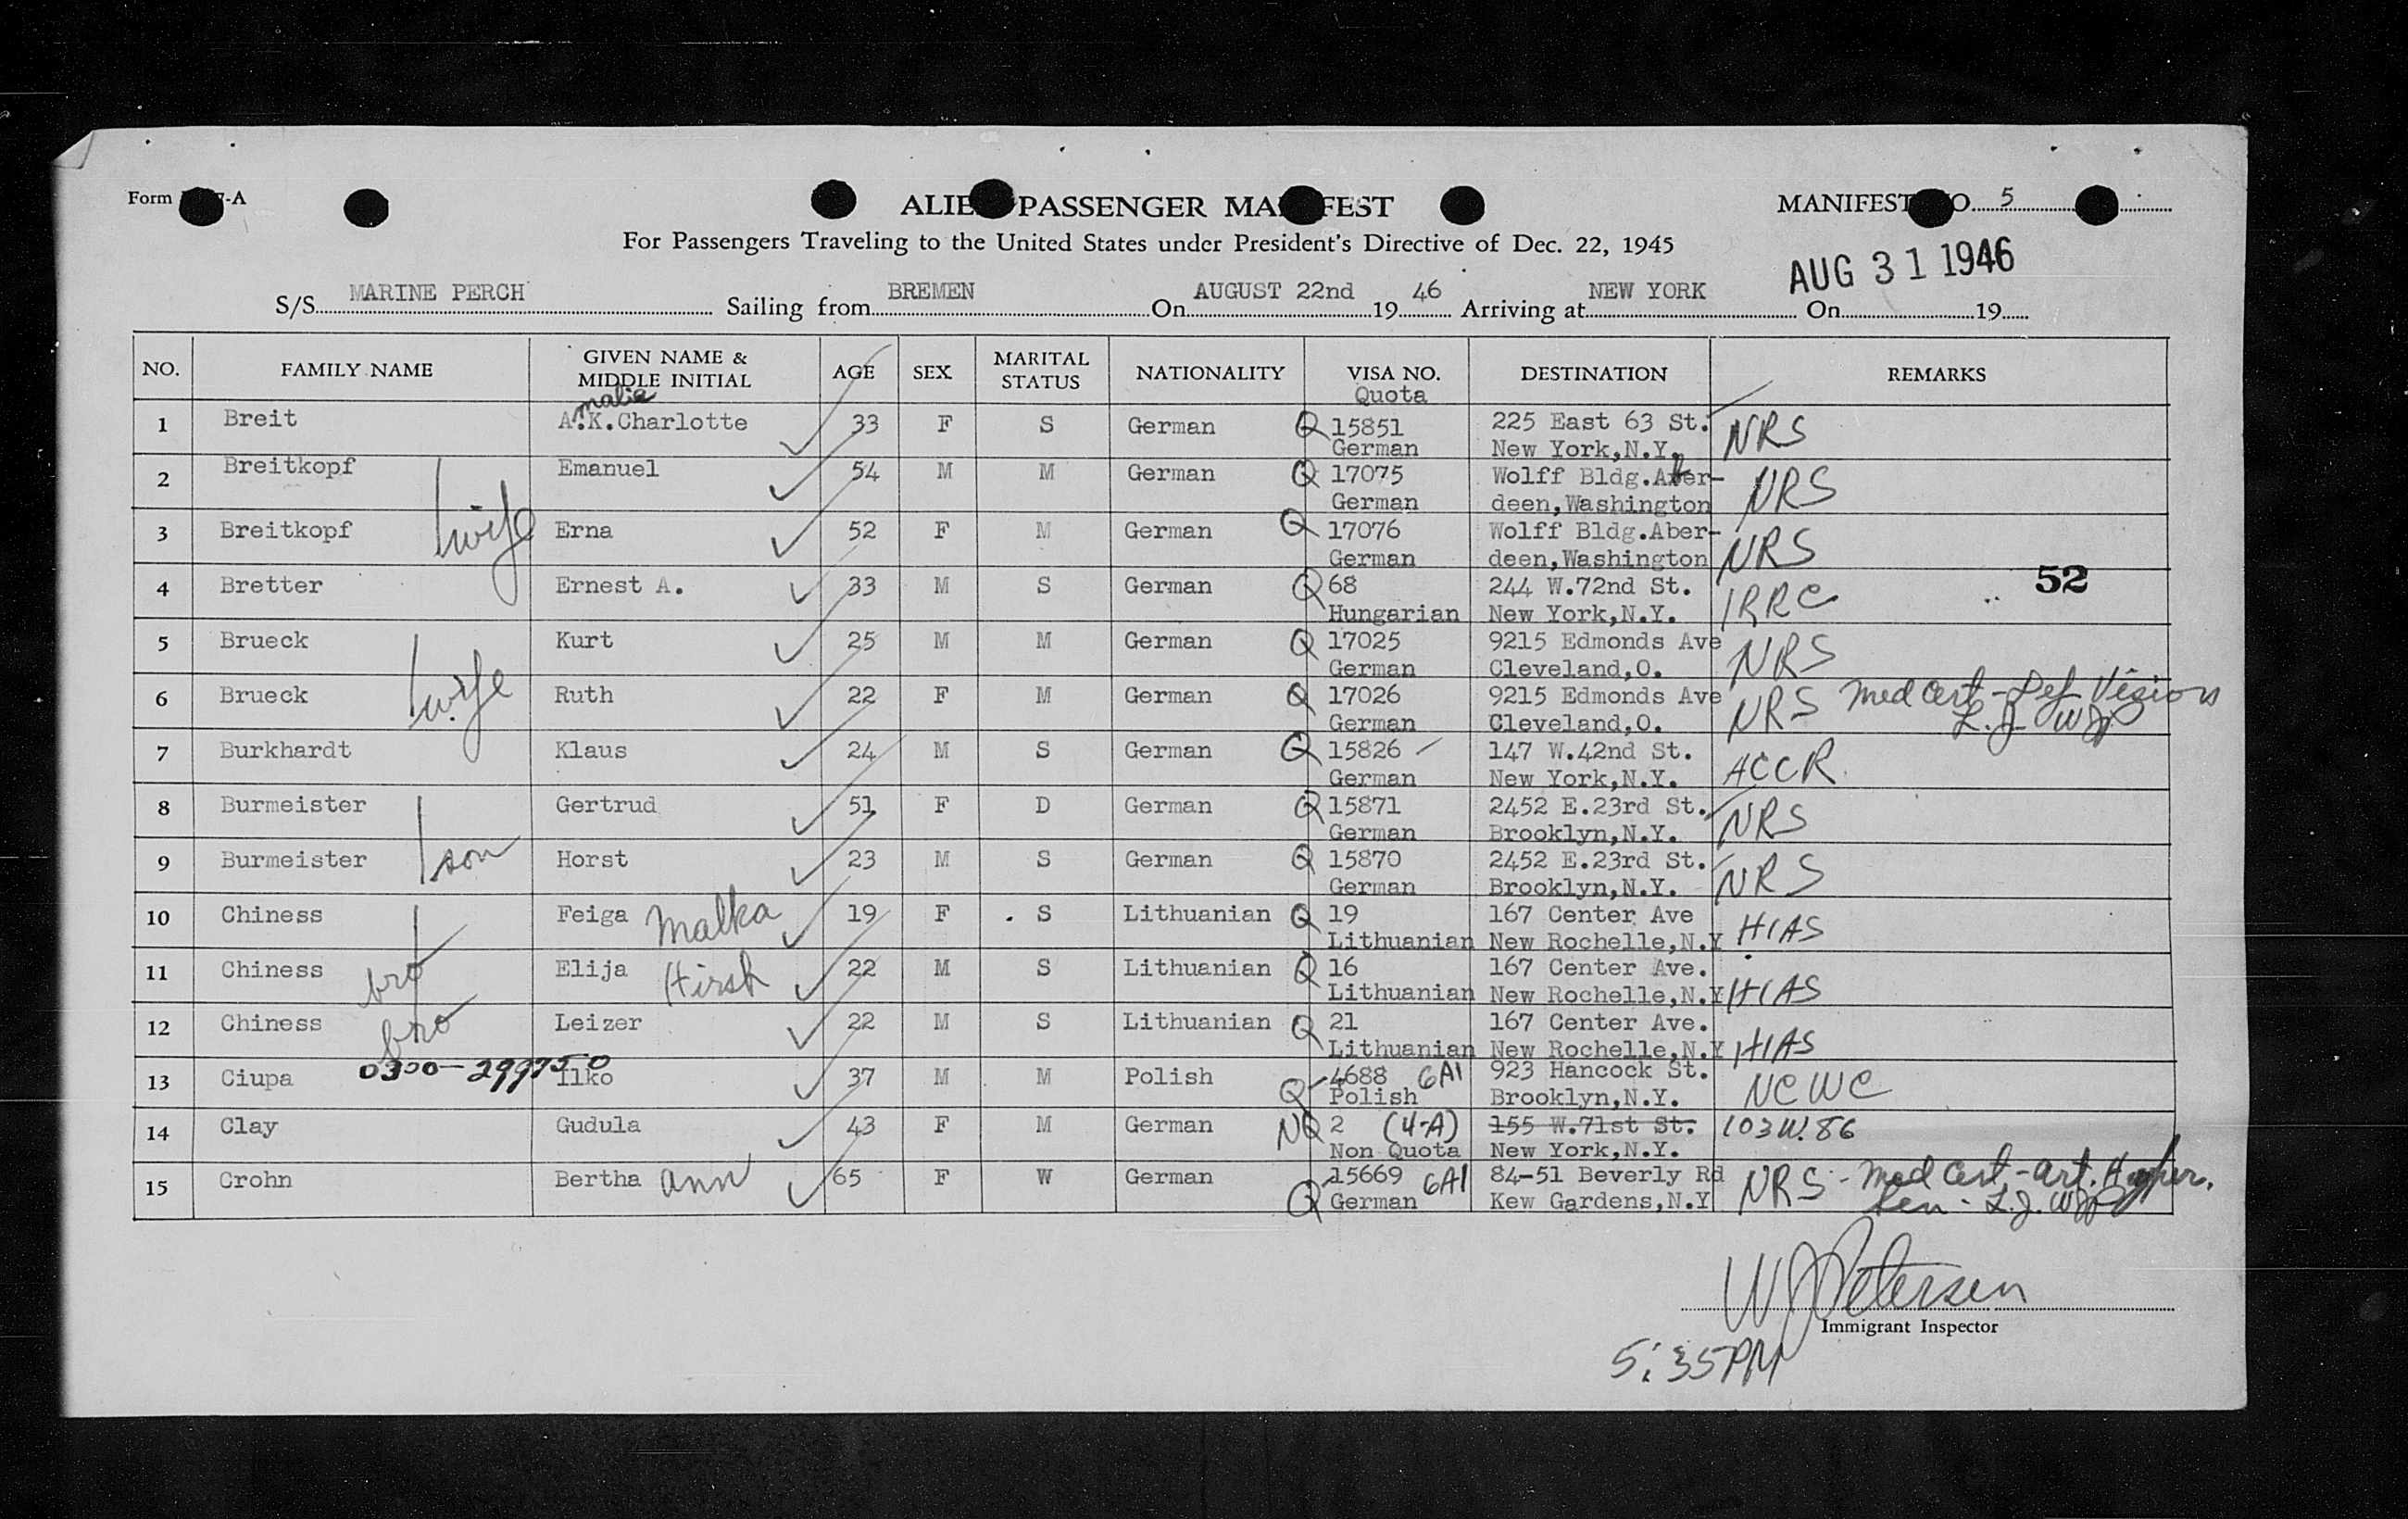 Form -A
ALIEN PASSENGER MANIFEST
MANIFEST NO. 5
For Passengers Traveling to the United States under President's Directive of Dec. 22, 1945
AUG 31 1946
S/S MARINE PERCH Sailing from BREMEN On AUGUST 22nd 19 46 Arriving at NEW YORK On 19
NO. FAMILY NAME GIVEN NAME & MIDDLE INITIAL AGE SEX MARITAL STATUS NATIONALITY VISA NO. DESTINATION REMARKS
malie Quota
1 Breit A.K.Charlotte 33 F S German Q 15851 225 East 63 St. NRS
German New York,N.Y.
2 Breitkopf Emanuel 54 M M German Q 17075 Wolff Bldg.Aber- NRS
German deen,Washington
3 Breitkopf wife Erna 52 F M German Q 17076 Wolff Bldg.Aber- NRS
German deen,Washington
52
4 Bretter Ernest A. 33 M S German Q 68 244 W.72nd St. IRRC
Hungarian New York,N.Y.
5 Brueck Kurt 25 M M German Q 17025 9215 Edmonds Ave NRS
German Cleveland,O.
6 Brueck wife Ruth 22 F M German Q 17026 9215 Edmonds Ave NRS Med Cert - Def Vision
German Cleveland,O. L.J. WJP
7 Burkhardt Klaus 24 M S German Q 15826 147 W.42nd St. ACCR
German New York,N.Y.
8 Burmeister Gertrud 51 F D German Q 15871 2452 E.23rd St. NRS
German Brooklyn,N.Y.
9 Burmeister son Horst 23 M S German Q 15870 2452 E.23rd St. NRS
German Brooklyn,N.Y.
10 Chiness Feiga Malka 19 F S Lithuanian Q 19 167 Center Ave HIAS
Lithuanian New Rochelle,N.Y
11 Chiness bro Elija Hirsh 22 M S Lithuanian Q 16 167 Center Ave. HIAS
Lithuanian New Rochelle,N.Y
12 Chiness bro Leizer 22 M S Lithuanian Q 21 167 Center Ave. HIAS
Lithuanian New Rochelle,N.Y
0300-299750
13 Ciupa Ilko 37 M M Polish Q 4688 6A1 923 Hancock St. NCWC
Polish Brooklyn,N.Y.
14 Clay Gudula 43 F M German NQ 2 (4-A) 155 W.71st St. 103 W. 86
Non Quota New York,N.Y.
15 Crohn Bertha Ann 65 F W German Q 15669 6A1 84-51 Beverly Rd NRS - Med Cert - Art. Hyper.
German Kew Gardens,N.Y L.J. WJP
WJPetersen
Immigrant Inspector
5:35PM